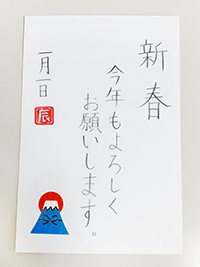 新春
今年もよろしく
お願いします。
一月一日
辰